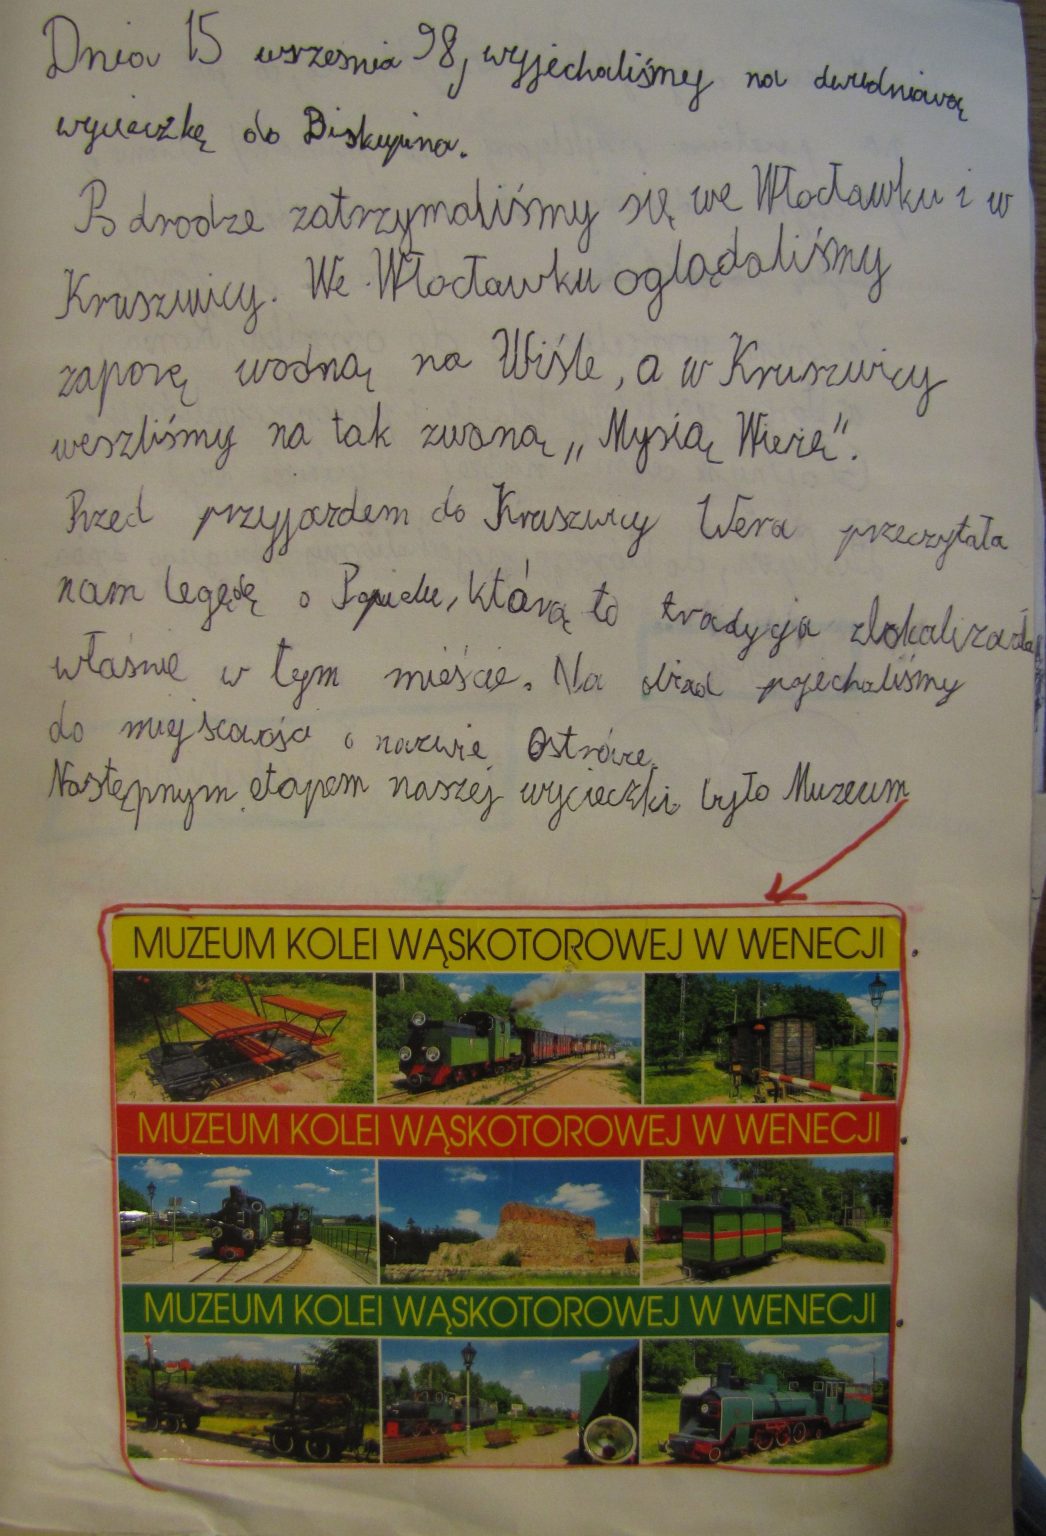 Dnia 15 wrzesnia 98, wyjechaliśmy na dwudniową
wycieczkę do Biskupina.
Po drodze zatrzymaliśmy się we Włocławku i w
Kruszwicy. We Włocławku oglądaliśmy
zaporę wodną na Wiśle, a w Kruszwicy
weszliśmy na tak zwaną „Mysią Wieżę".
Przed przyjazdem do Kruszwicy Wera przeczytała
nam legędę o Popielu, którą to tradycja zlokalizowała
właśnie w tym mieście. Na obiad pojechaliśmy
do miejscowości o nazwie Ostrówce.
Następnym etapem naszej wycieczki było Muzeum
MUZEUM KOLEI WĄSKOTOROWEJ W WENECJI
MUZEUM KOLEI WĄSKOTOROWEJ W WENECJI
MUZEUM KOLEI WĄSKOTOROWEJ W WENECJI